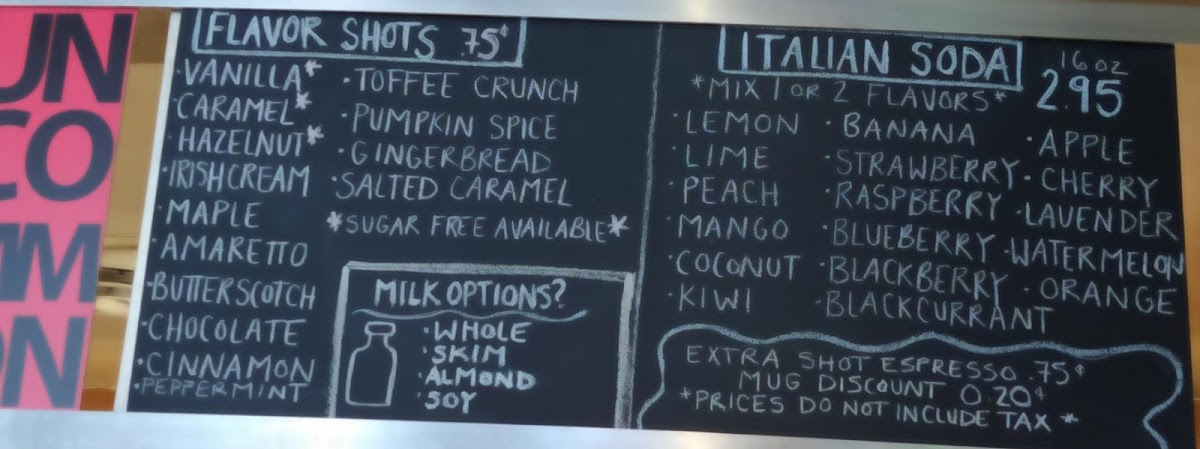 UN
CO
MM
ON
FLAVOR SHOTS .75¢
·VANILLA*
·CARAMEL*
·HAZELNUT*
·IRISH CREAM
·MAPLE
·AMARETTO
·BUTTERSCOTCH
·CHOCOLATE
·CINNAMON
·PEPPERMINT
·TOFFEE CRUNCH
·PUMPKIN SPICE
·GINGERBREAD
·SALTED CARAMEL
*SUGAR FREE AVAILABLE*
MILK OPTIONS?
·WHOLE
·SKIM
·ALMOND
·SOY
ITALIAN SODA
16 OZ
2.95
*MIX 1 OR 2 FLAVORS*
·LEMON
·LIME
·PEACH
·MANGO
·COCONUT
·KIWI
·BANANA
·STRAWBERRY
·RASPBERRY
·BLUEBERRY
·BLACKBERRY
·BLACKCURRANT
·APPLE
·CHERRY
·LAVENDER
·WATERMELON
·ORANGE
EXTRA SHOT ESPRESSO .75¢
MUG DISCOUNT 0.20¢
*PRICES DO NOT INCLUDE TAX*